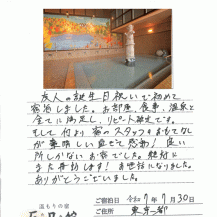 友人の誕生日祝いで初めて
宿泊しました。お部屋、食事、温泉と
全てに満足し、リピート確定です。
そして何より宿のスタッフのおもてなし
が素晴しい宿で感動！良い
所しかないお宿でした。絶対に
また再訪します！お世話になりました。
ありがとうございました。
ご宿泊日 令和7年7月30日
温もりの宿
ご住所 東京都